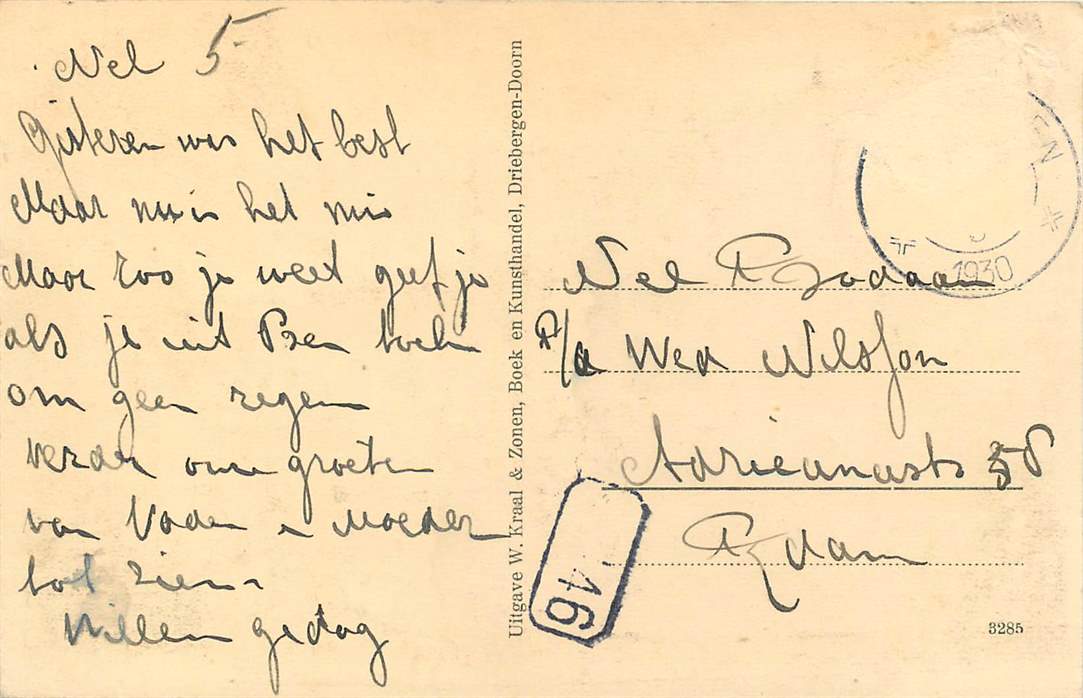 Nel 5
Gisteren was het best
Maar nu is het mis
Maar zoo je weet geef je
als je uit Ben toch
om geen regen
verder onze groeten
van Vader en Moeder
tot ziens
Willem gedag
Uitgave W. Kraal & Zonen, Boek en Kunsthandel, Driebergen-Doorn
EN
1930
Nel
P/a Wed Wilsfon
Adrieanasts
R dam
146
3285